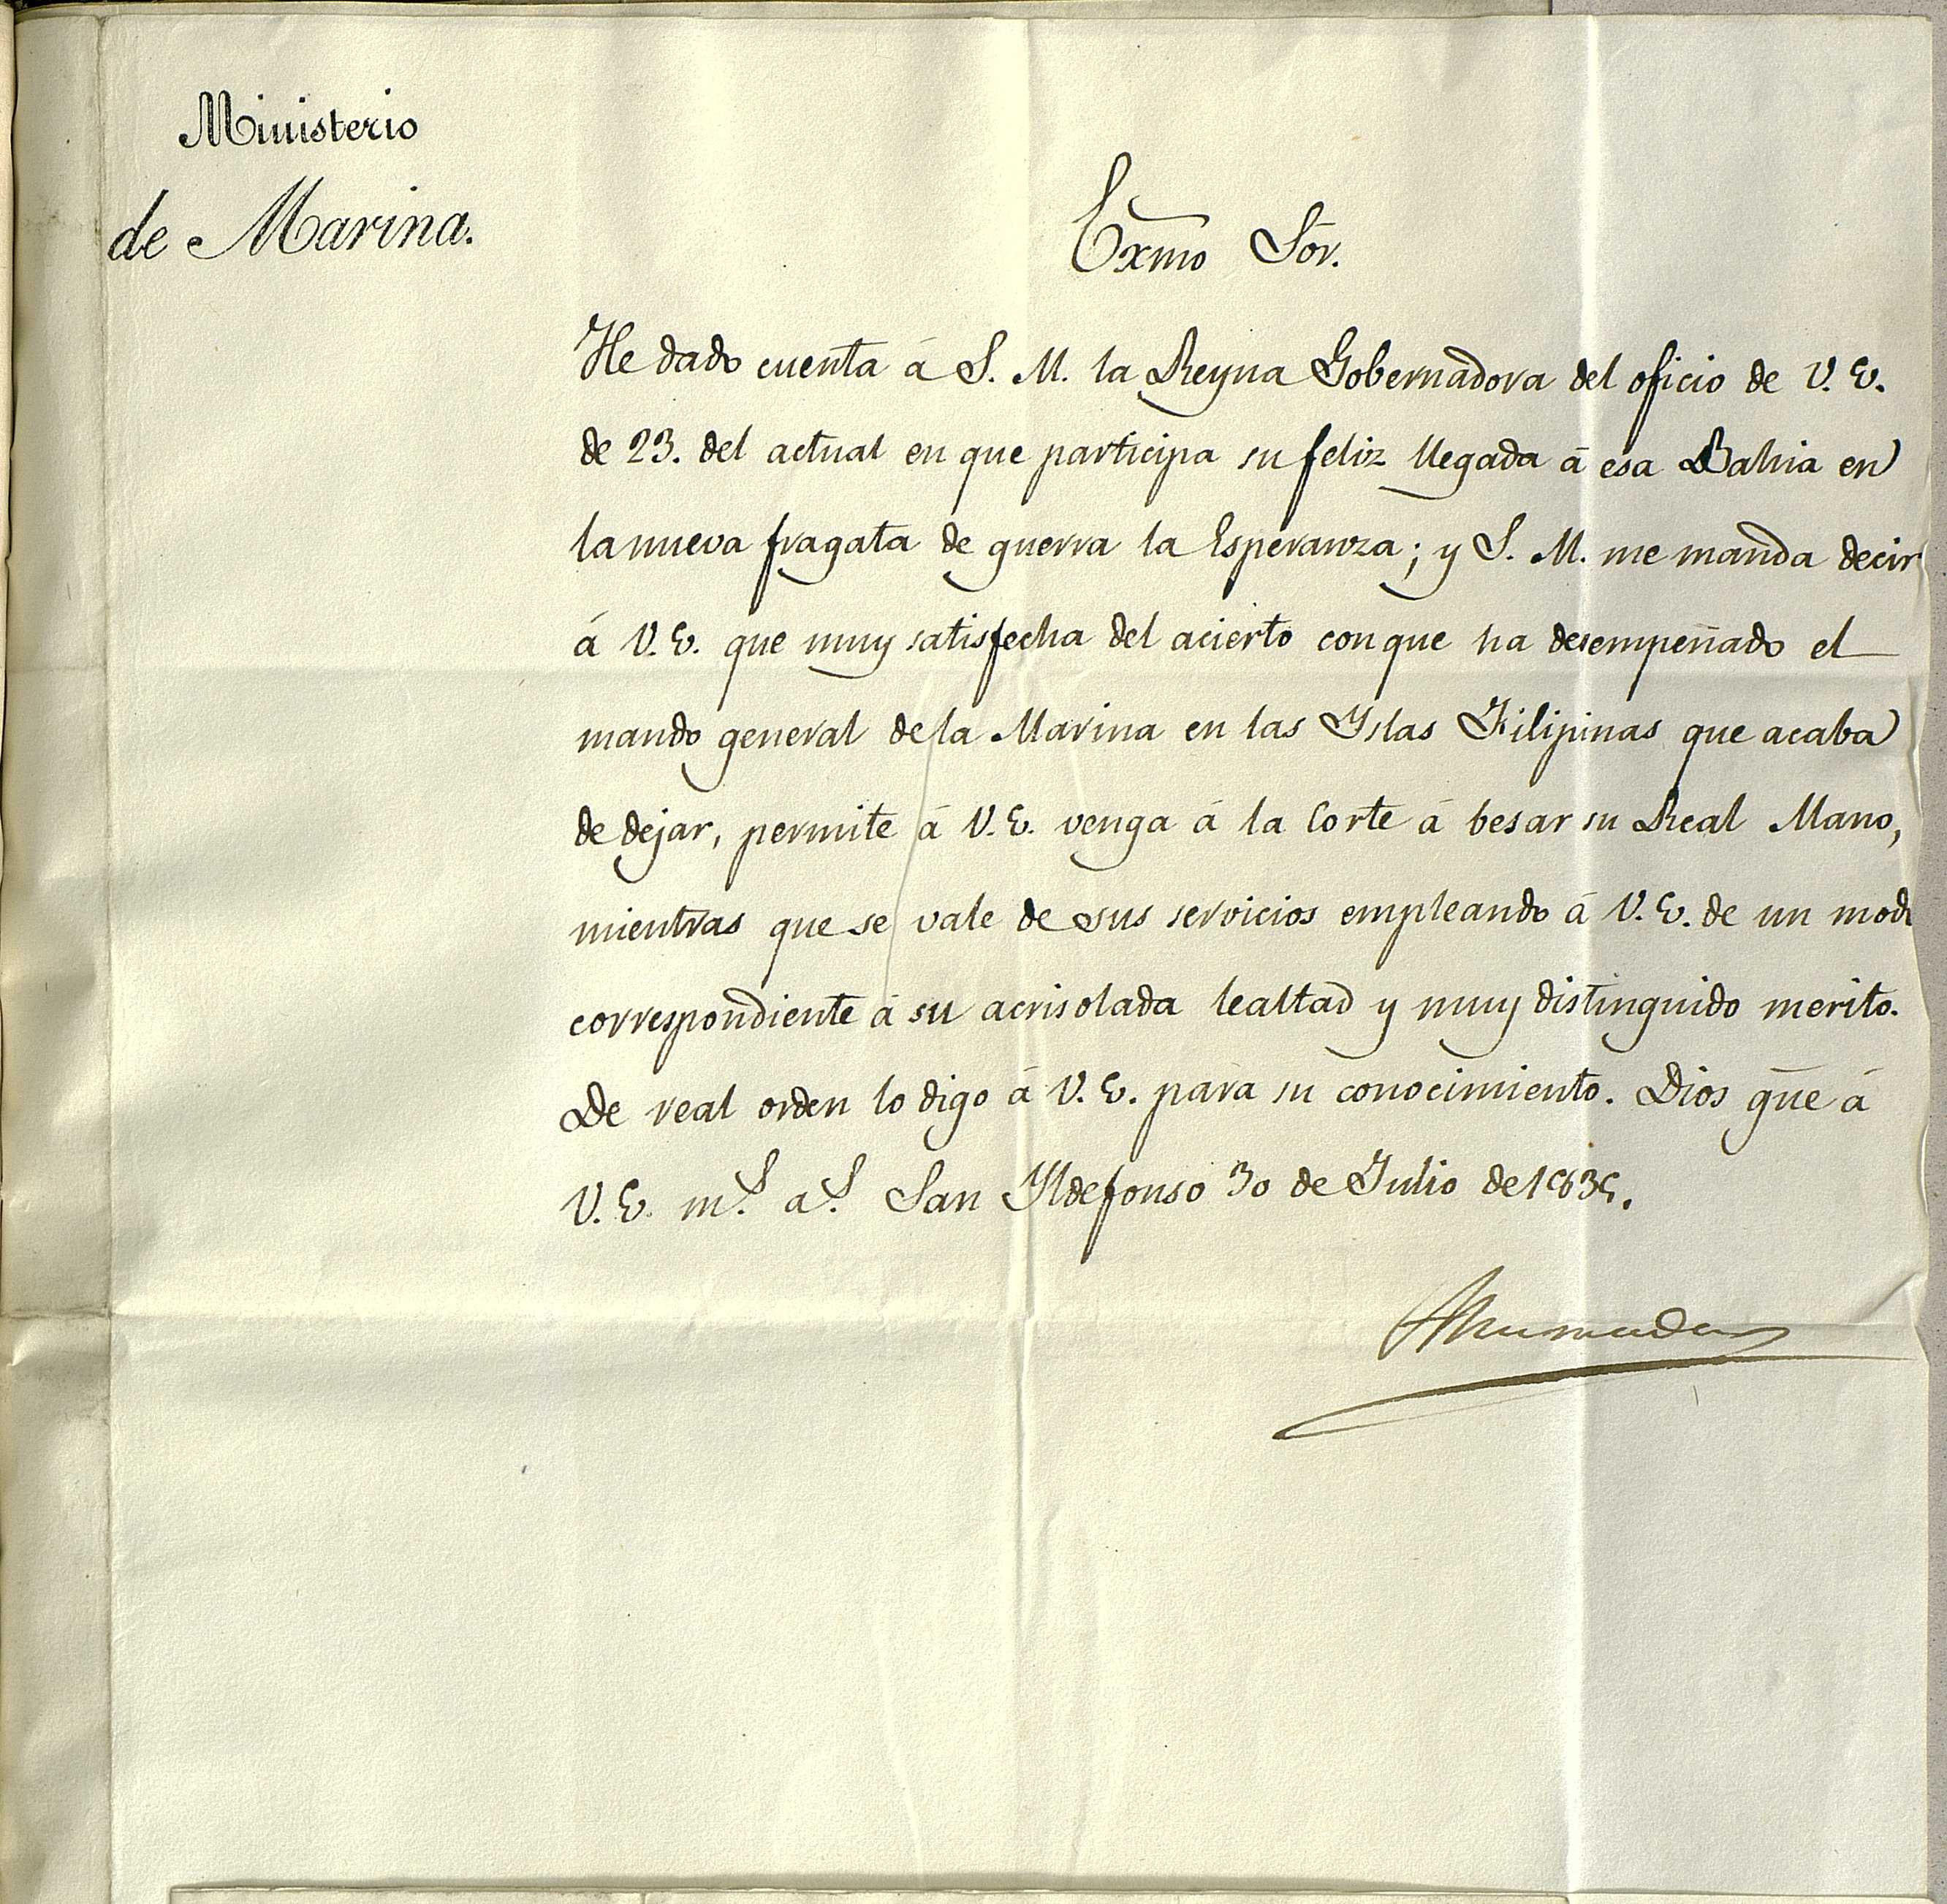 Ministerio
de Marina.
Exmo Sōr.
He dado cuenta á S. M. la Reyna Gobernadora del oficio de V. E.
de 23. del actual en que participa su feliz llegada á esa Bahia en
la nueva fragata de guerra la Esperanza; y S. M. me manda decir
á V. E. que muy satisfecha del acierto con que ha desempeñado el
mando general de la Marina en las Yslas Filipinas que acaba
de dejar, permite á V. E. venga á la Corte á besar su Real Mano,
mientras que se vale de sus servicios empleando á V. E. de un modo
correspondiente á su acrisolada lealtad y muy distinguido merito.
De real orden lo digo á V. E. para su conocimiento. Dios gūe á
V. E. m.s a.s San Yldefonso 30 de Julio de 1835.
Ahumada